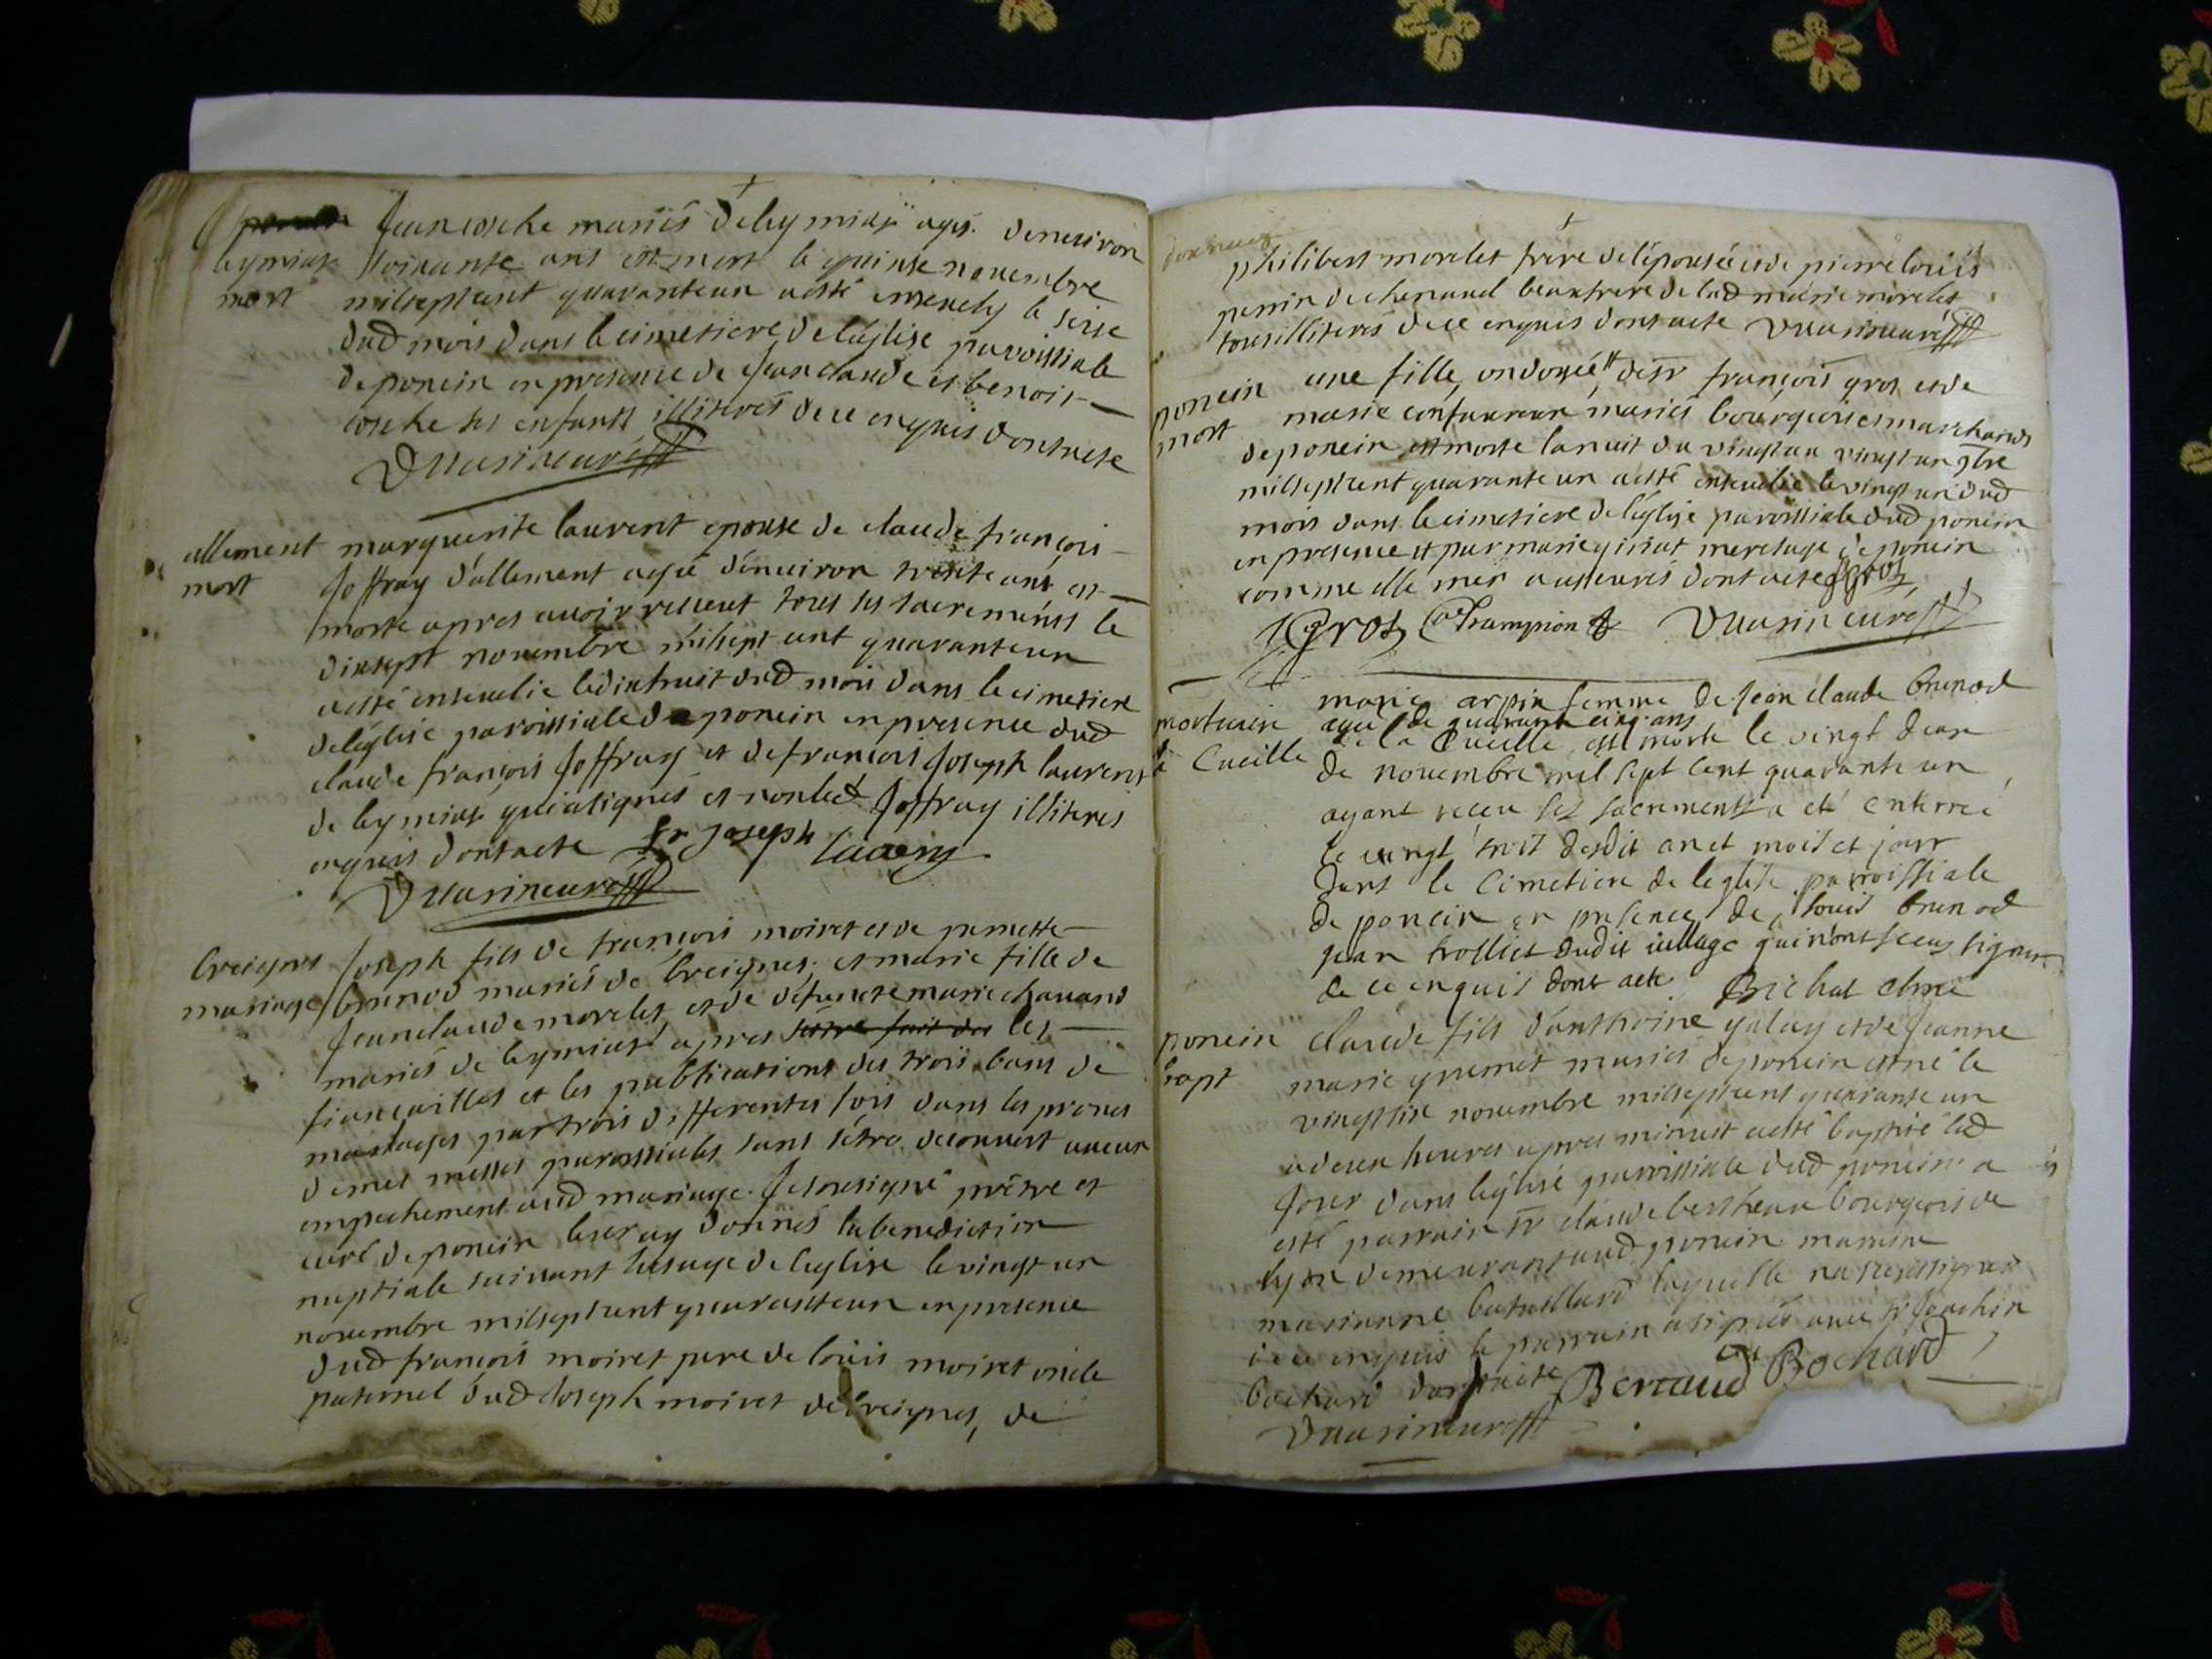 Jean cosche mariés de leymiaz agé denuiron
leymiaz soixante ans est mort le quinse nouembre
mort milseptcent quaranteun aesté enseuely le seise
dud mois dans le cimetiere de l'église paroissiale
de poncin en presence de Jean claude et benoit
cosche ses enfants illiterés de ce enquis dont acte
allement marguerite laurent epouse de claude françois
mort Joffray d'allement agée d'enuiron trente ans est
morte apres auoir receut tous ses sacrements le
dixsept nouembre milsept cent quaranteun
aesté enseuelie ledixhuit dud mois dans le cimetiere
de léglise paroissiale de poncin en presence dud
claude françois Joffray et de françois Joseph laurens
de leymiaz qui a signés et non led Joffray illiteres
enquis dont acte fr Joseph laurens
breignes Joseph fils de françois moiret et de pernette
mariage brunod mariés de breignes, et marie fille de
Jean claude morelet et de defuncte marie chanand
mariés de leymiaz apres les
fiançailles et les publications des trois bans de
mariages par trois differentes fois dans les prones
de mes messes paroissiales sans s'etre decouuert aucun
empechement aud mariage. Je soussigné prêtre et
curé de poncin leur ay donnés la benediction
nuptiale suiuant lusage de l'eglise le vingt un
nouembre milseptcent quaranteun en presence
dud françois moiret pere de loüis moiret oncle
paternel dud Joseph moiret de breignes, de
philibert morelet frere de l'épousée et de pierre loüis
perrin de chenauel beaufrere de lad marie morelet
tous illiterés de ce enquis dont acte
poncin une fille ondoyée de sr françois gros et de
mort marie mariés bourgeois et marchands
de poncin est morte la nuit du vingt au vingt un 9bre
milseptcent quarante un aesté enseuelie le vingt un dud
mois dans le cimetiere de l'église paroissiale dud poncin
en presence et par marie de poncin
comme elle m'en a asseurés dont acte gros
gros Champion
marie arpin femme de Jean claude brunod
mortuaire agée de quarante cinq ans
la Cueille de la Cueille est morte le vingt deux
de novembre mil sept cent quarante un
ayant receu ses sacrements a eté enterrée
le vingt trois desdit an et mois et jour
dans le Cimetiere de leglise paroissiale
de poncin en presence de louis brunod
jean trolliet dudit uillage qui n'ont sceus signer
de ce enquis dont acte Brichat
poncin claude fils d'anthoine galay et de Jeanne
bapt marie guemet mariés de poncin est né le
vingt six nouembre milseptcent quarante un
a deux heures apres minuit aesté baptisé led
Jour dans leglise paroissiale dud poncin a
esté parrain sr claude bertheau bourgeois de
lyon demeurant aud poncin marraine
marianne batailllard laquelle na sceu signer
de ce enquis le parrain a signés auec sr Joachin
bochard dont acte Bertaud Bochard